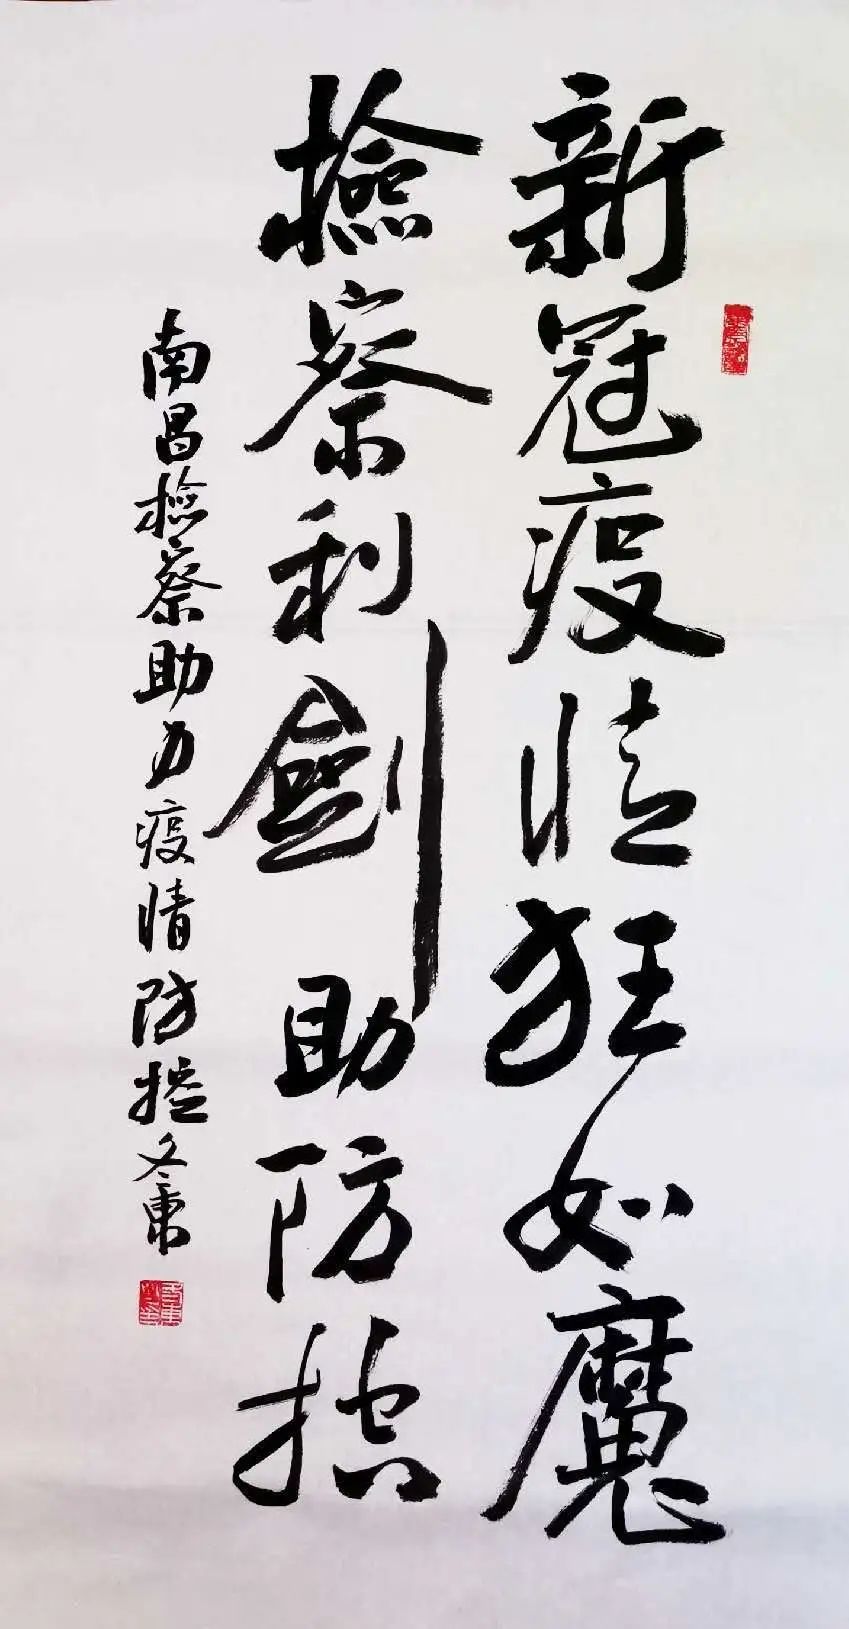 新冠疫情狂如魔
檢察利劍助防控
南昌檢察助力疫情防控冬東